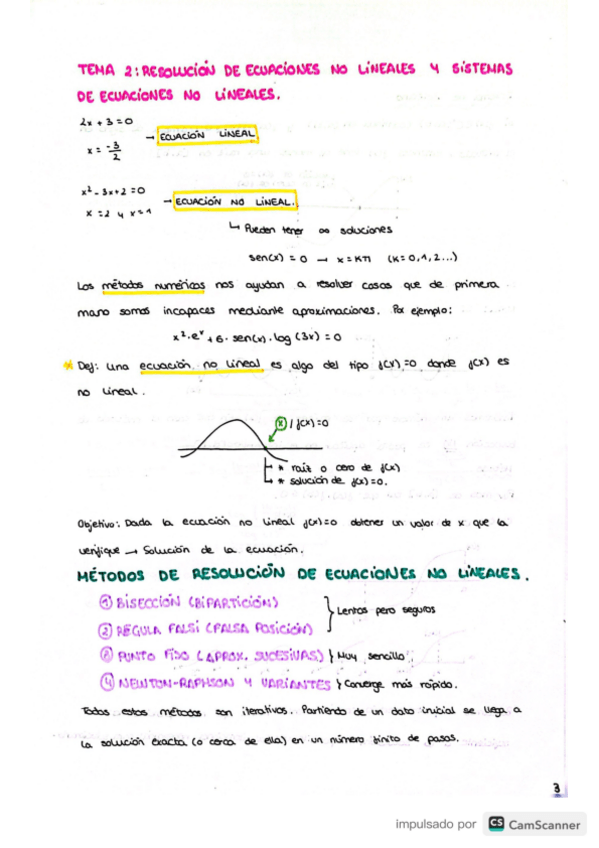 TEMA 2: RESOLUCIÓN DE ECUACIONES NO LINEALES Y SISTEMAS
DE ECUACIONES NO LINEALES.
2x + 3 = 0
→ ECUACIÓN LINEAL
x = -3/2
x² - 3x + 2 = 0
→ ECUACIÓN NO LINEAL.
x = 2 y x = 1
↳ Pueden tener ∞ soluciones
sen(x) = 0 → x = kπ (k = 0, 1, 2...)
Los métodos numéricos nos ayudan a resolver casos que de primera
mano somos incapaces mediante aproximaciones. Por ejemplo:
x²·eˣ + 6·sen(x)·log(3x) = 0
Def: Una ecuación no lineal es algo del tipo f(x) = 0 donde f(x) es
no lineal.
x / f(x) = 0
* raíz o cero de f(x)
* solución de f(x) = 0.
Objetivo: Dada la ecuación no lineal f(x) = 0 obtener un valor de x que la
verifique → Solución de la ecuación.
MÉTODOS DE RESOLUCIÓN DE ECUACIONES NO LINEALES.
① BISECCIÓN (BIPARTICIÓN)
Lentos pero seguros
② REGULA FALSI (FALSA POSICIÓN)
③ PUNTO FIJO (APROX. SUCESIVAS) } Muy sencillo
④ NEWTON-RAPHSON Y VARIANTES } Converge más rápido.
Todos estos métodos son iterativos. Partiendo de un dato inicial se llega a
la solución exacta (o cerca de ella) en un número finito de pasos.
3
impulsado por CS CamScanner